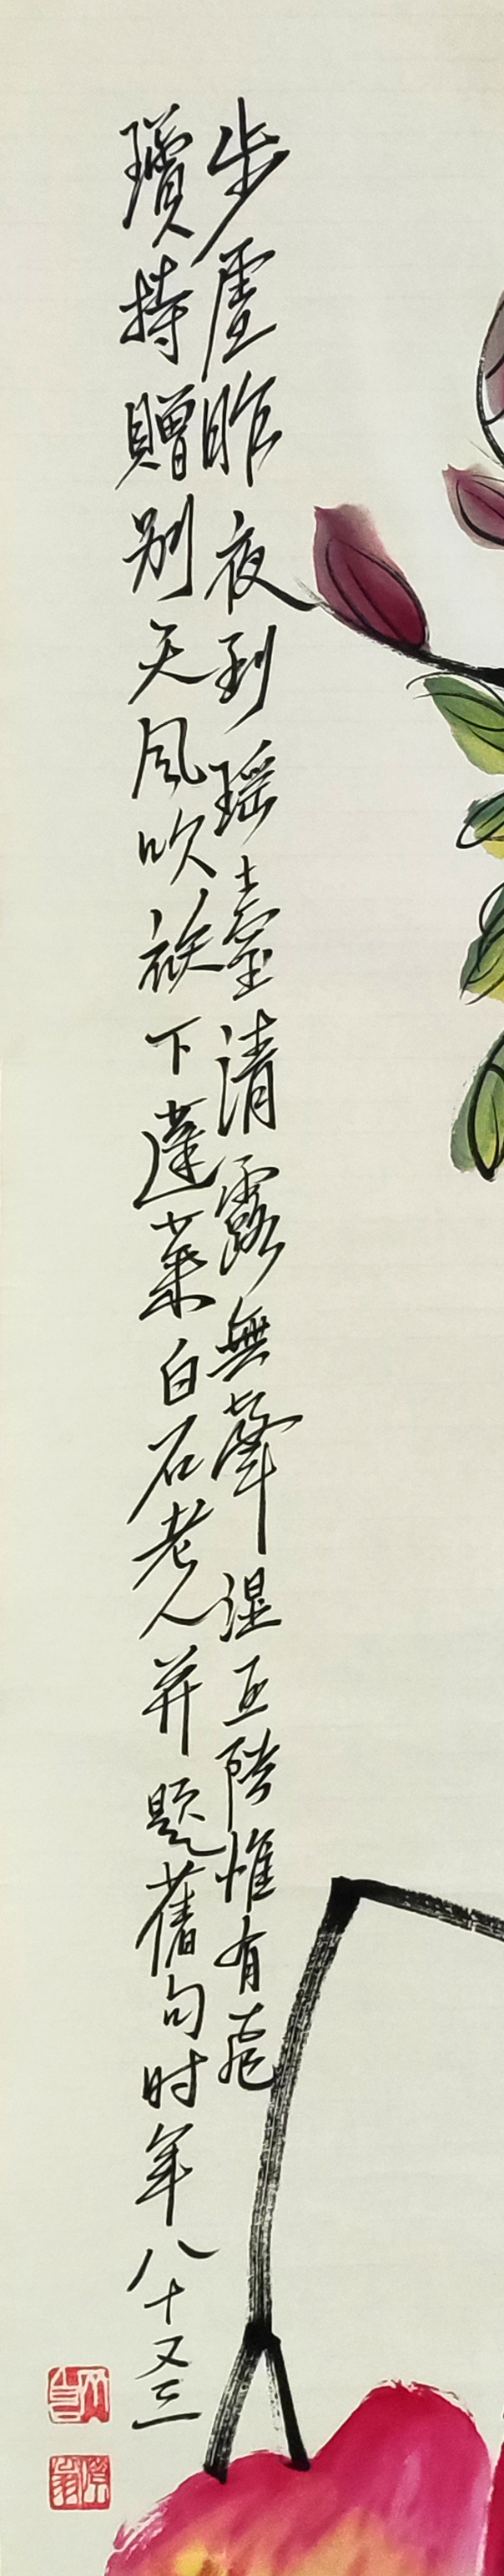 步虛昨夜到瑤臺清露無聲溼玉階惟有飛
瓊持贈別天風吹袂下蓬萊白石老人并題舊句时年八十又三